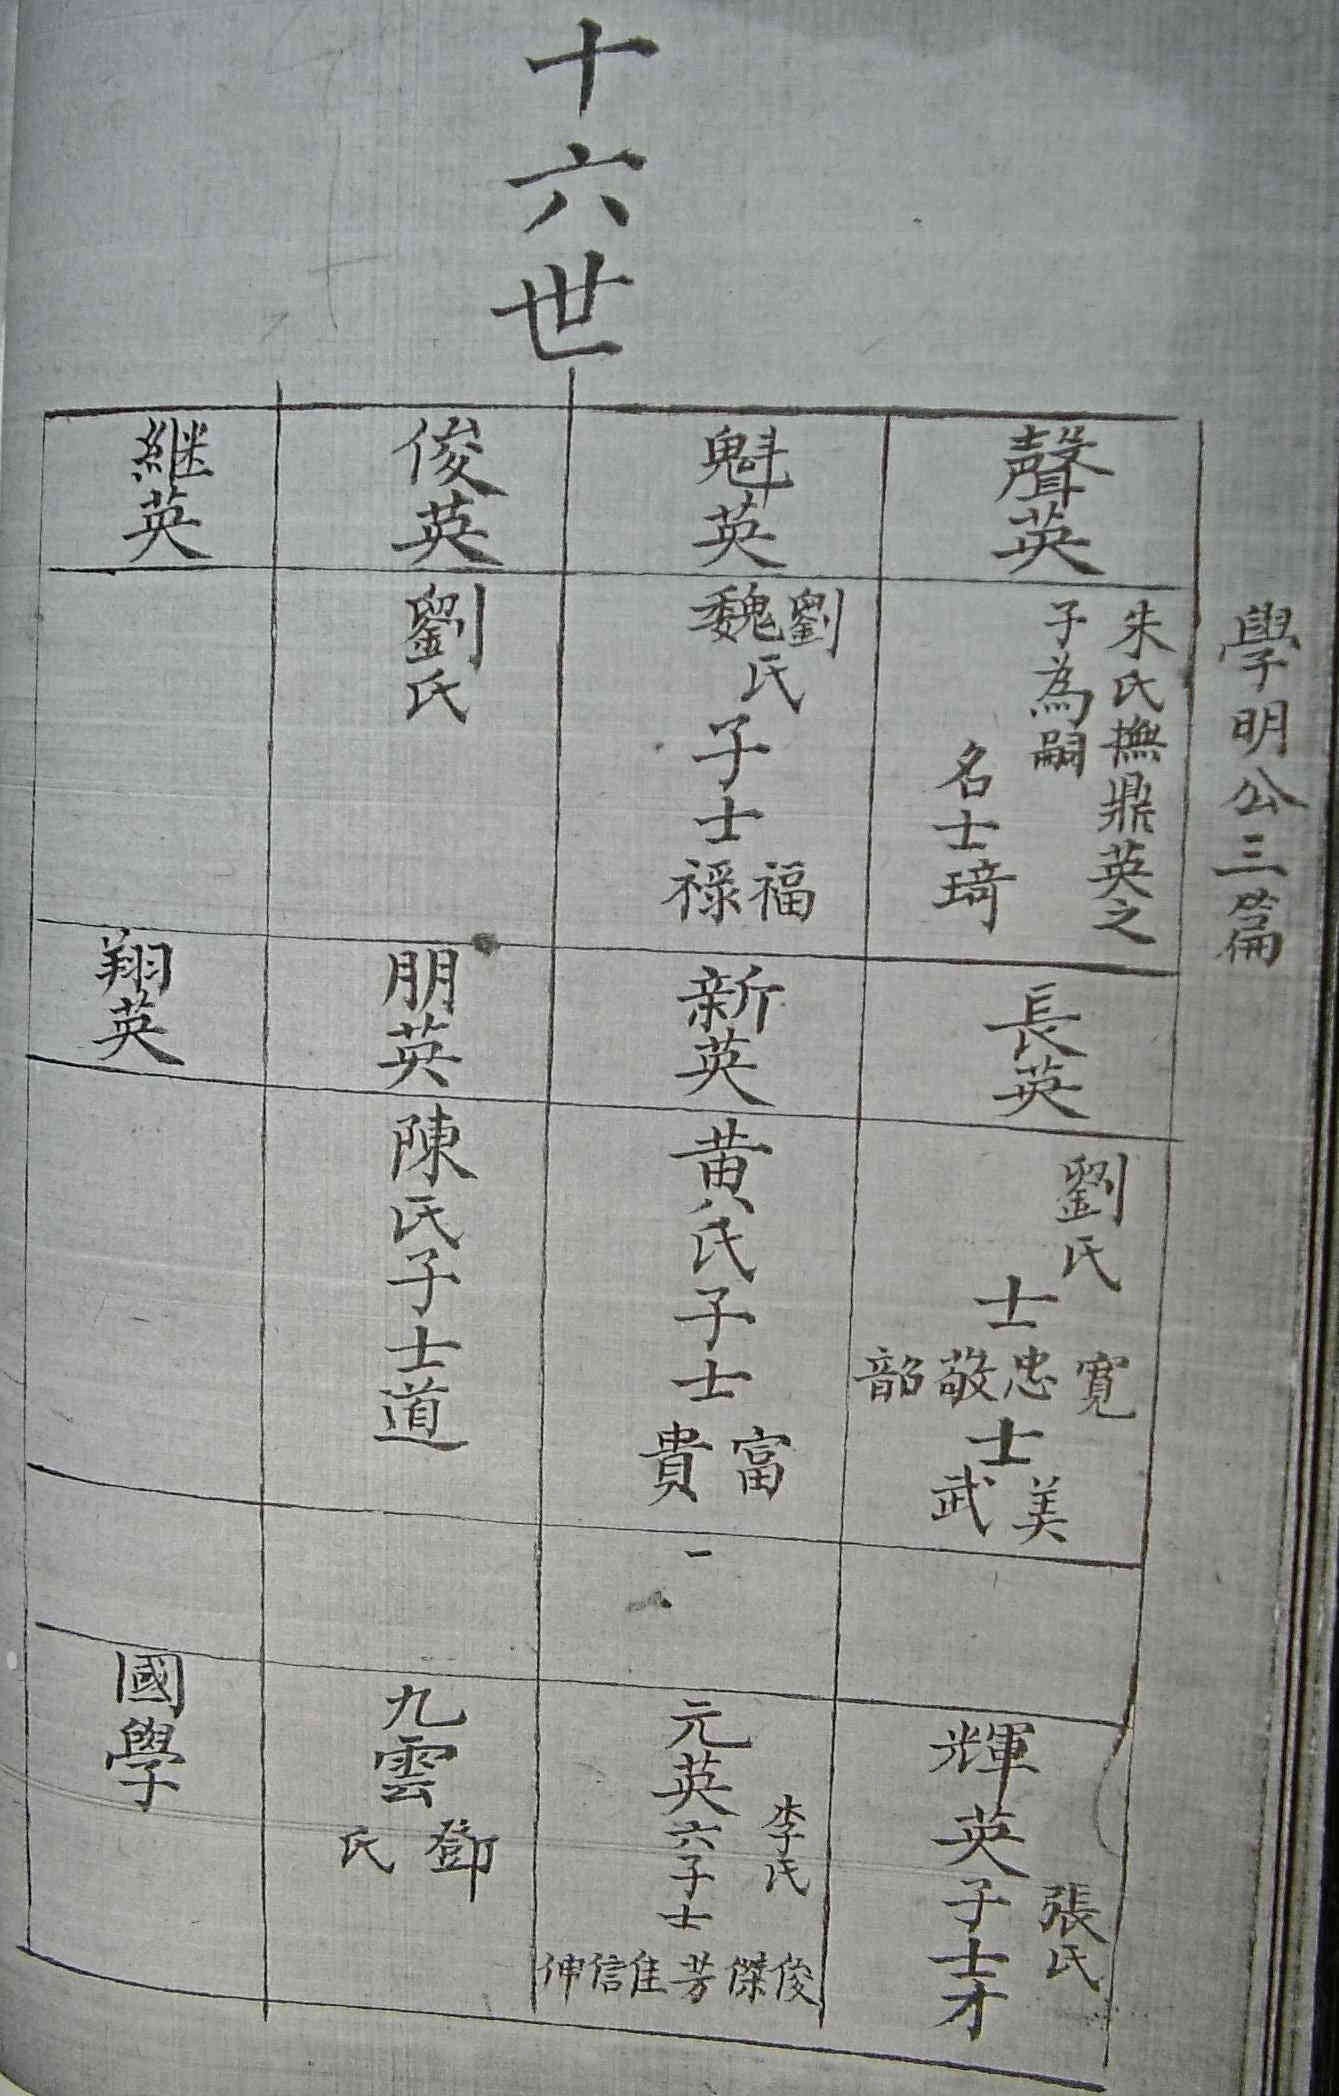 十六世
學明公三篇
聲英
朱氏撫鼎英之
子為嗣
名士琦
魁英
劉
魏氏
子士
福祿
俊英
劉氏
継英
長英
劉氏
士
寬忠敬韶
士
美武
新英
黄氏子士
富貴
朋英
陳氏子士道
翔英
輝英子士才
張氏
元英六子士
李氏
俊傑芳隹信伸
九雲
鄧氏
國學